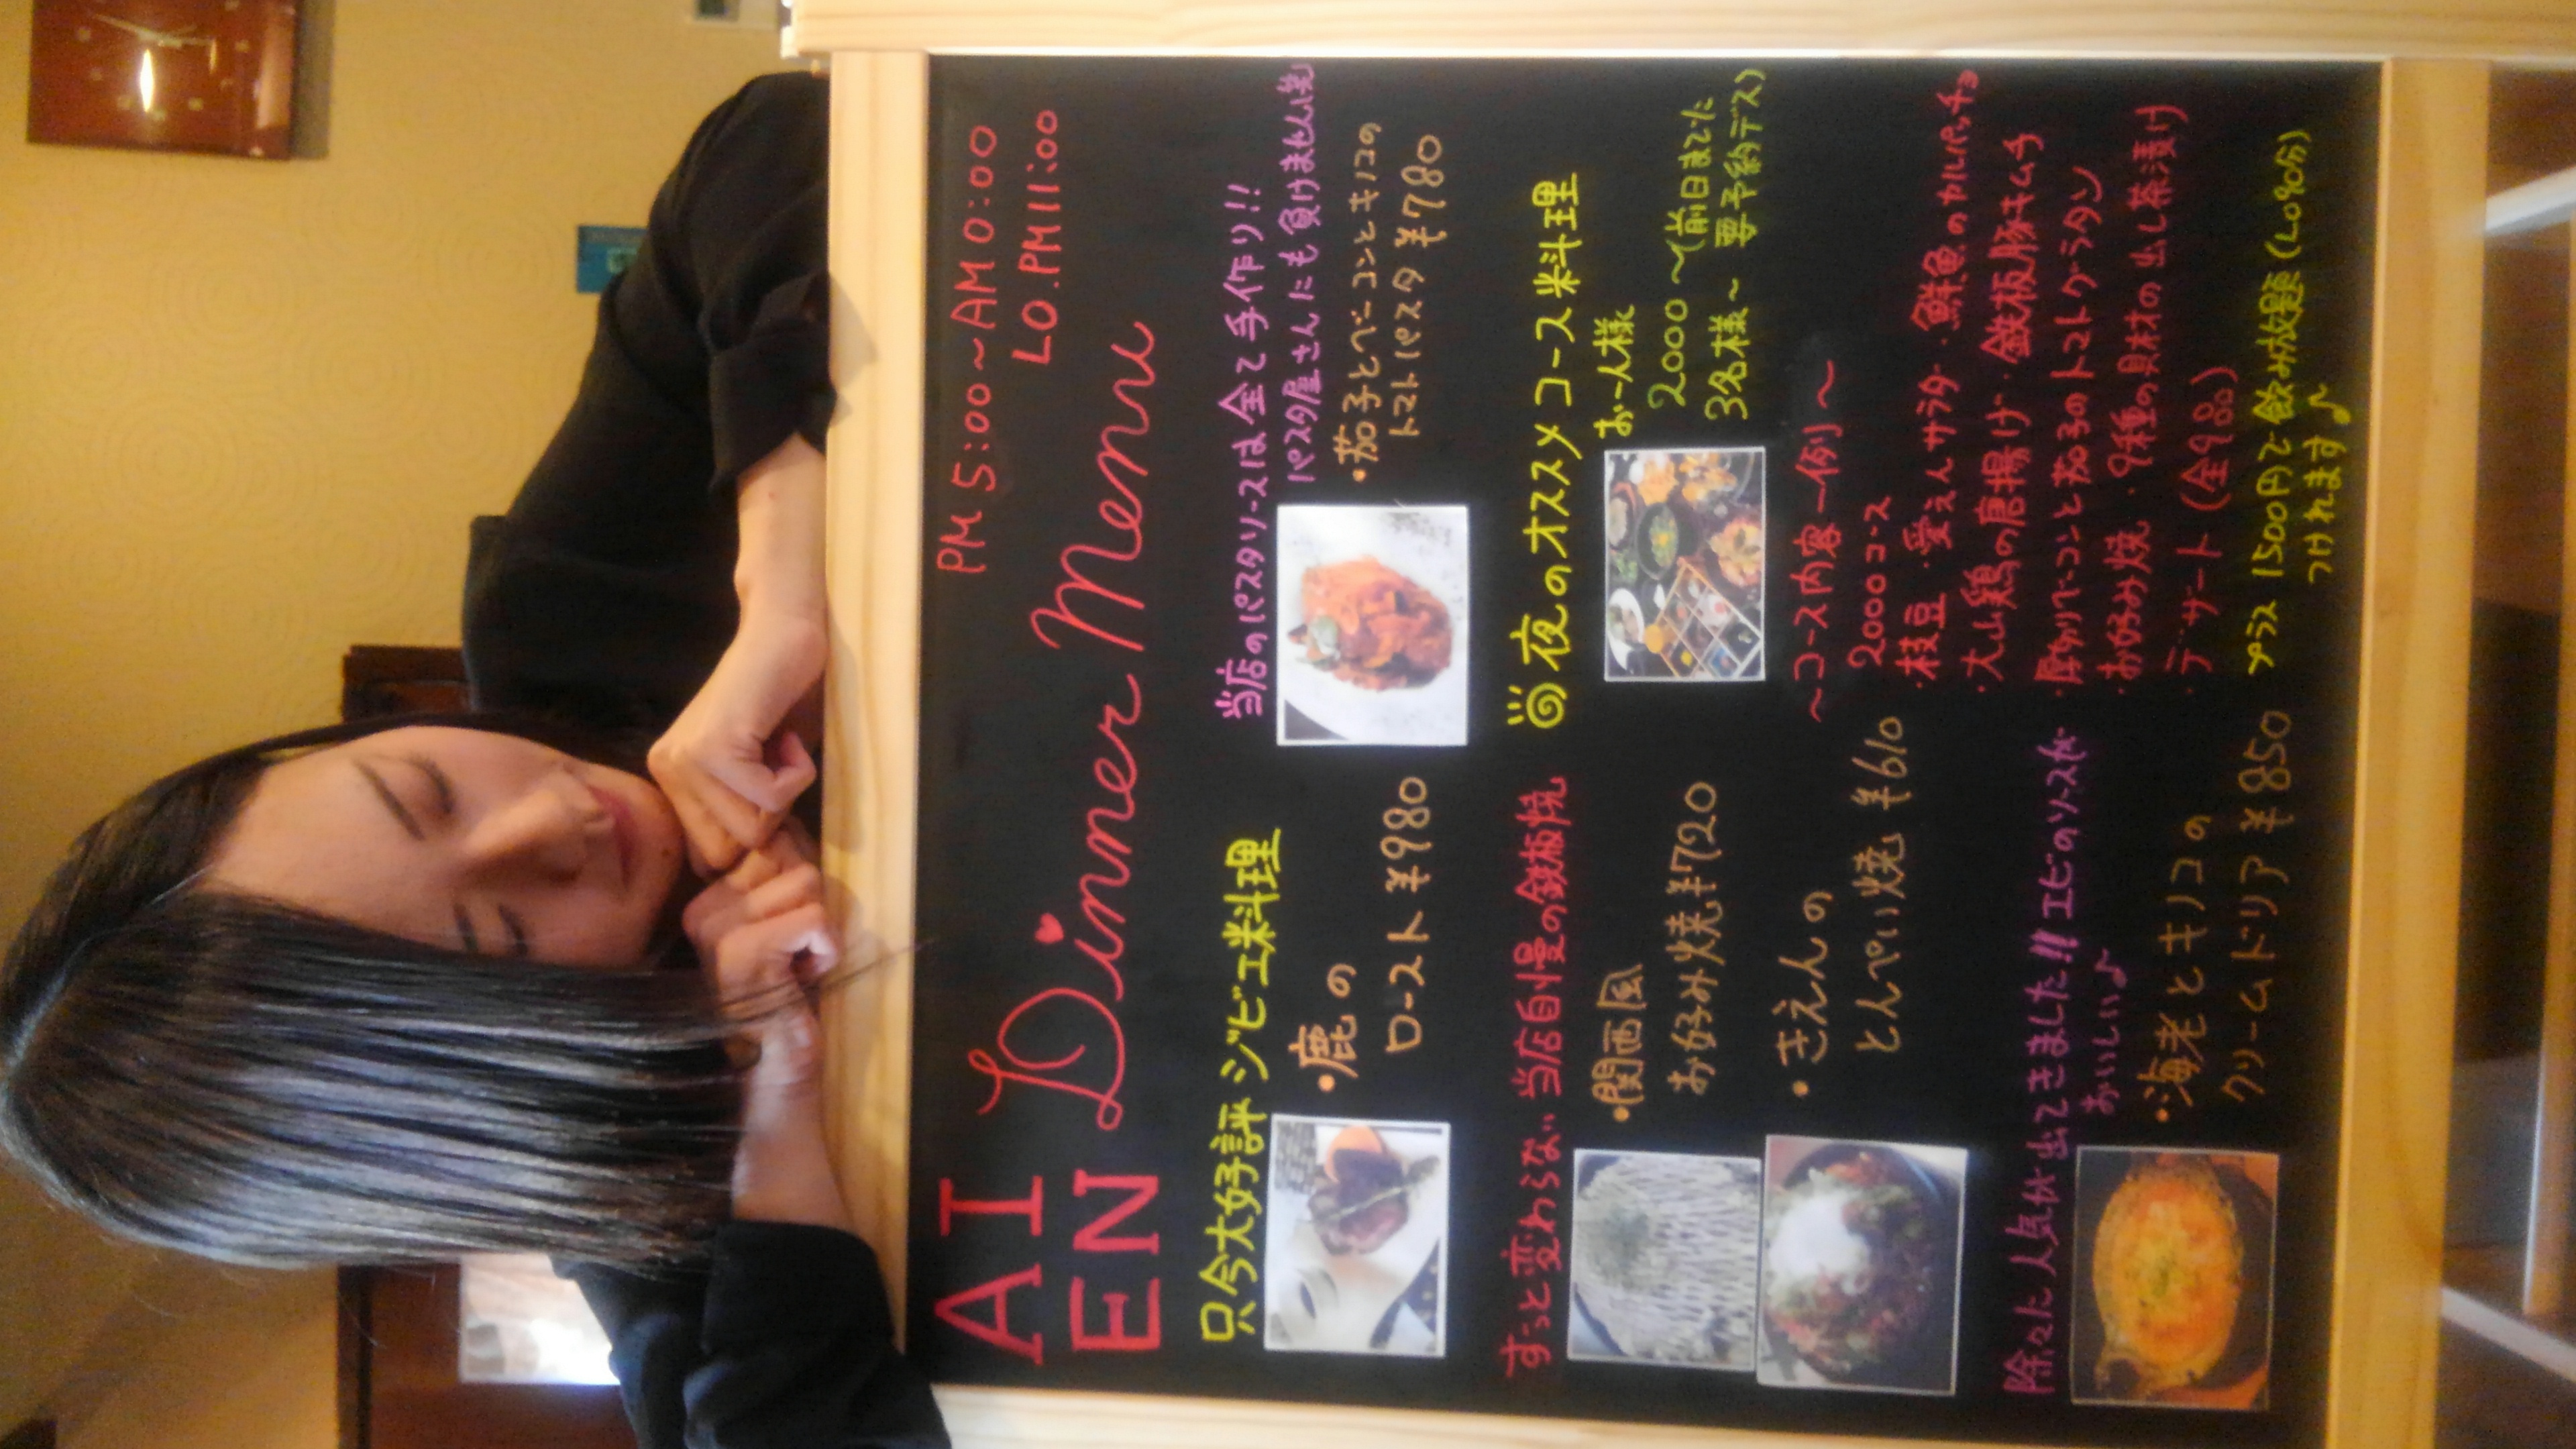 PM 5:00～AM 0:00
LO.PM11:00
AI
EN
Dinner Menu
只今大好評 ジビエ料理
・鹿の
ロースト ¥980
当店のパスタソースは全て手作り!!
パスタ屋さんにも負けません(笑)
・茄子とベーコンとキノコの
トマトパスタ ¥780
ずっと変わらない 当店自慢の鉄板焼
・関西風
お好み焼 ¥720
・きえんの
とんぺい焼 ¥610
夜のオススメ コース料理
お一人様
2000～(前日までに
3名様～ 要予約デス)
～コース内容一例～
2000コース
・枝豆 ・愛えんサラダ ・鮮魚のカルパッチョ
・大山鶏の唐揚げ ・鉄板豚キムチ
・厚切ベーコンと茄子のトマトグラタン
・お好み焼 ・9種の具材の出し茶漬け
・デザート (全9品)
プラス 1500円で 飲み放題 (LO90分)
つけれます♪
除々に人気が出てきました!! エビのソースが
おいしい♪
・海老とキノコの
クリームドリア ¥850